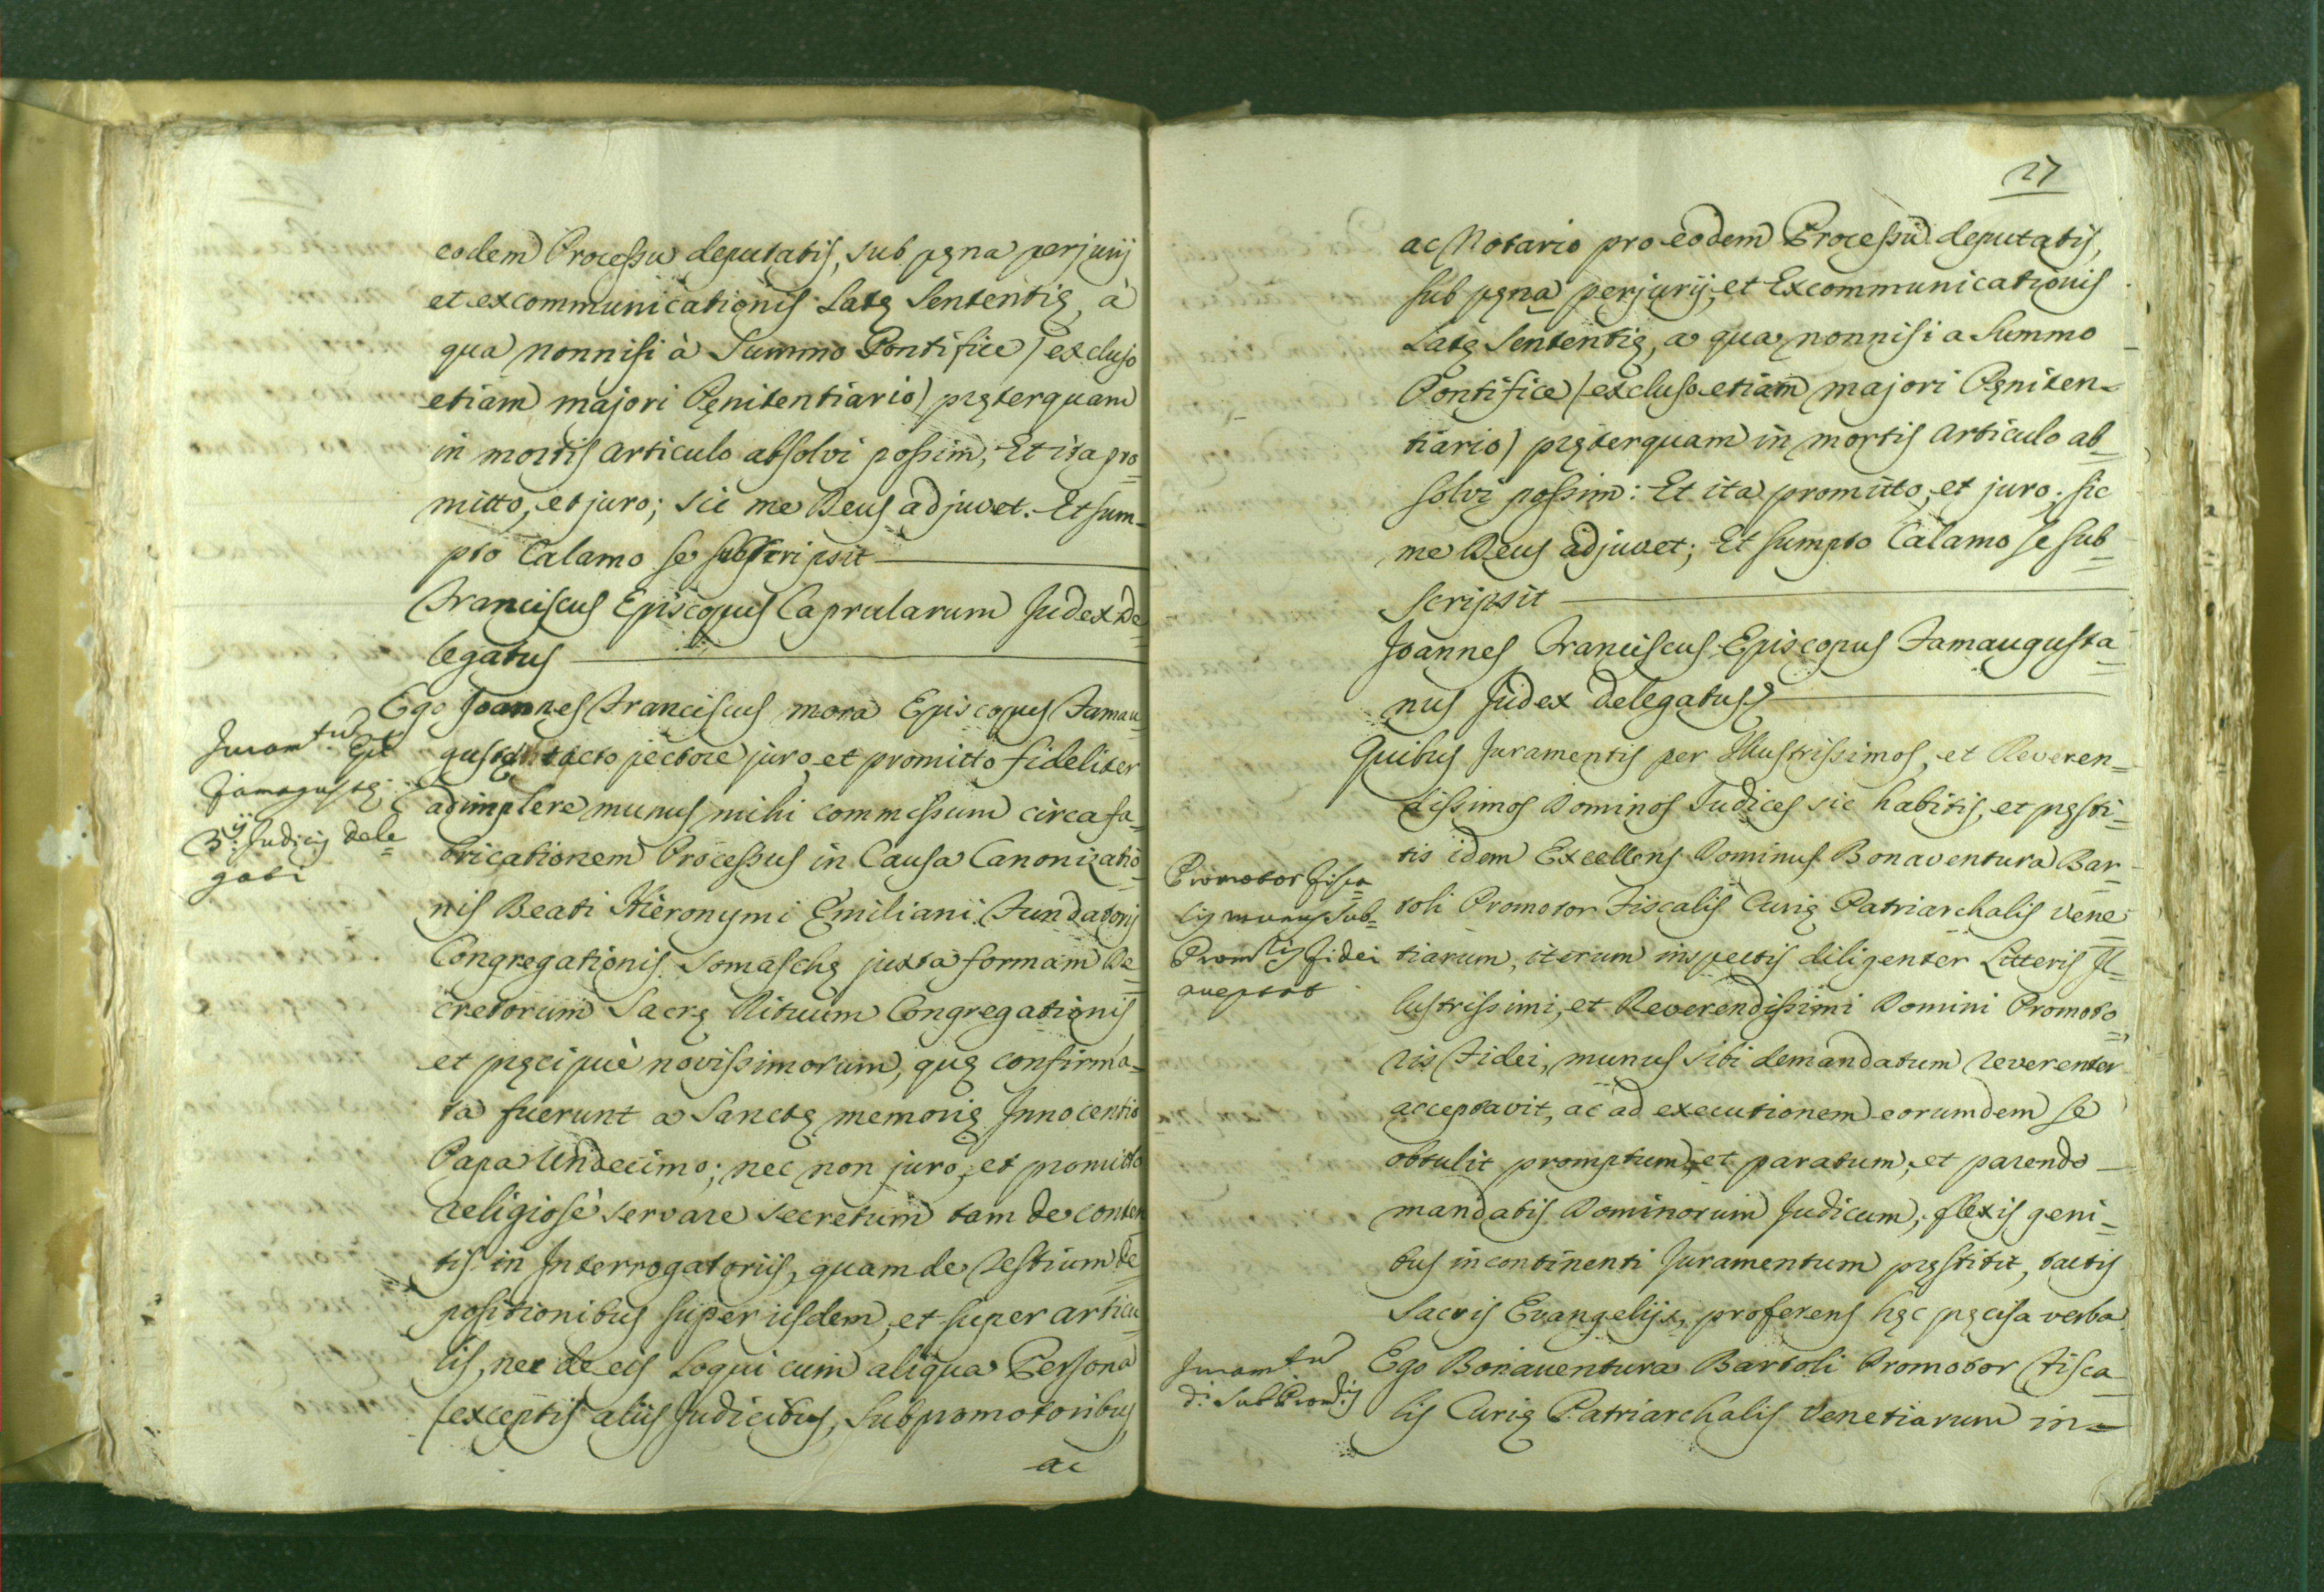 eodem Processu deputatis, sub pęna perjurij
et excommunicationis Latę Sententię, à
qua nonnisi à Summo Pontifice (excluso
etiam majori Pęnitentiario) pręterquam
in mortis articulo absolvi possim; Et ita pro=
mitto, et juro; sic me Deus adjuvet. Et sum=
pto Calamo se subscripsit
Franciscus Episcopus Caprularum Judex De=
legatus
Ego Joannes Franciscus mora Episcopus Famau
gustę tacto pectore juro et promitto fideliter
adimplere munus mihi commissum circa fa=
bricationem Processus in Causa Canonizatio=
nis Beati Hieronymi Emiliani Fundatoris
Congregationis Somaschę juxta formam De=
cretorum Sacrę Rituum Congregationis
et pręcipuè novissimorum, quę confirma=
ta fuerunt a Sanctę memorię Innocentio
Papa Undecimo; nec non juro, et promitto
religiosè servare secretum tam de conten
tis in Interrogatoriis, quam de Testium de=
positionibus super iisdem, et super articu=
lis, nec de eis Loqui cum aliqua Persona
(exceptis aliis Judicibus, Subpromotoribus,
ac
Juram.tu Epi
Famagustę
3.ij Judicis dele=
gati
27
ac Notario pro eodem Processu deputatis,
sub pęna perjurij, et Excommunicationis
Latę Sententię, a qua nonnisi a Summo
Pontifice (excluso etiam majori Pęniten=
tiario) pręterquam in mortis articulo ab=
solvi possim: Et ita promitto, et juro; sic
me Deus adjuvet; Et sumpto Calamo se sub=
scripsit
Joannes Franciscus Episcopus Famaugusta=
nus Judex delegatus
Quibus Juramentis per Illustrissimos, et Reveren=
dissimos Dominos Judices sic habitis, et pręsti=
tis idem Excellens Dominus Bonaventura Bar=
toli Promotor Fiscalis Curię Patriarchalis Vene=
tiarum, iterum inspectis diligenter Litteris Il=
lustrissimi, et Reverendissimi Domini Promoto=
ris Fidei, munus sibi demandatum reverenter
acceptavit, ac ad executionem eorumdem se
obtulit promptum, et paratum, et parendo
mandatis Dominorum Judicum, flexis geni=
bus incontinenti Juramentum pręstitit, tactis
Sacris Evangelijs, proferens hęc pręcisa verba
Ego Bonaventura Bartoli Promotor Fisca=
lis Curię Patriarchalis Venetiarum in=
Promotor Fisca=
lis munus Sub=
Prom.tis Fidei
acceptat
Juram.tu